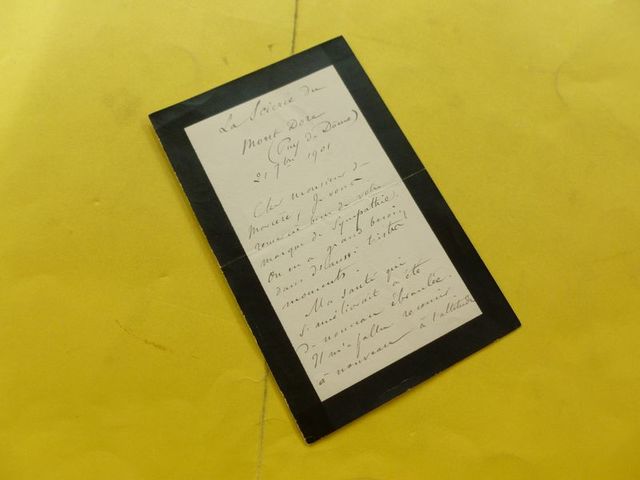 La Scierie du
Mont Dore
(Puy de Dôme)
21 7bre 1901
Cher monsieur de
je vous
remercie bien de votre
marque de Sympathie.
On en a grand besoin
dans d'aussi tristes
moments.
Ma santé qui
s'améliorait a été
de nouveau ébranlée.
Il m'a fallu recourir
à nouveau à l'altitude